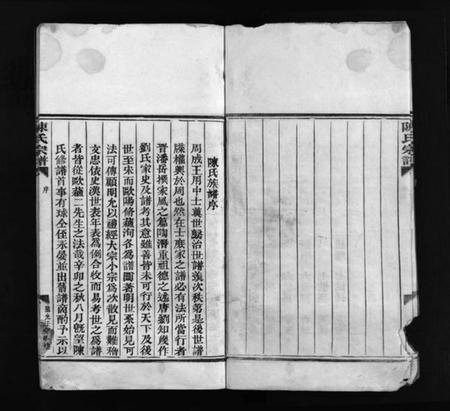 陳氏宗譜
陳氏族譜序
周成王用中士奠世繫治世譜第次秩第是後世譜
牒權輿於周也然在士庶家之譜必有法所當行者
晉潘岳撰家風之篇陶潛重祖德之述唐劉知幾作
劉氏家史及譜考其意雖善皆未可行於天下及後
世至宋而歐陽脩蘇洵各為譜圖著明世系始見可
法可傳顧明允以禮經大宗小宗為次散見而難稽
文忠依史漢世表年表為例合收而易考世之為譜
者皆從歐蘇二先生之法哉辛卯之秋八月既望陳
氏修譜首事有球仝侄永晏並出舊譜囑酌予示以
陳氏宗譜
序